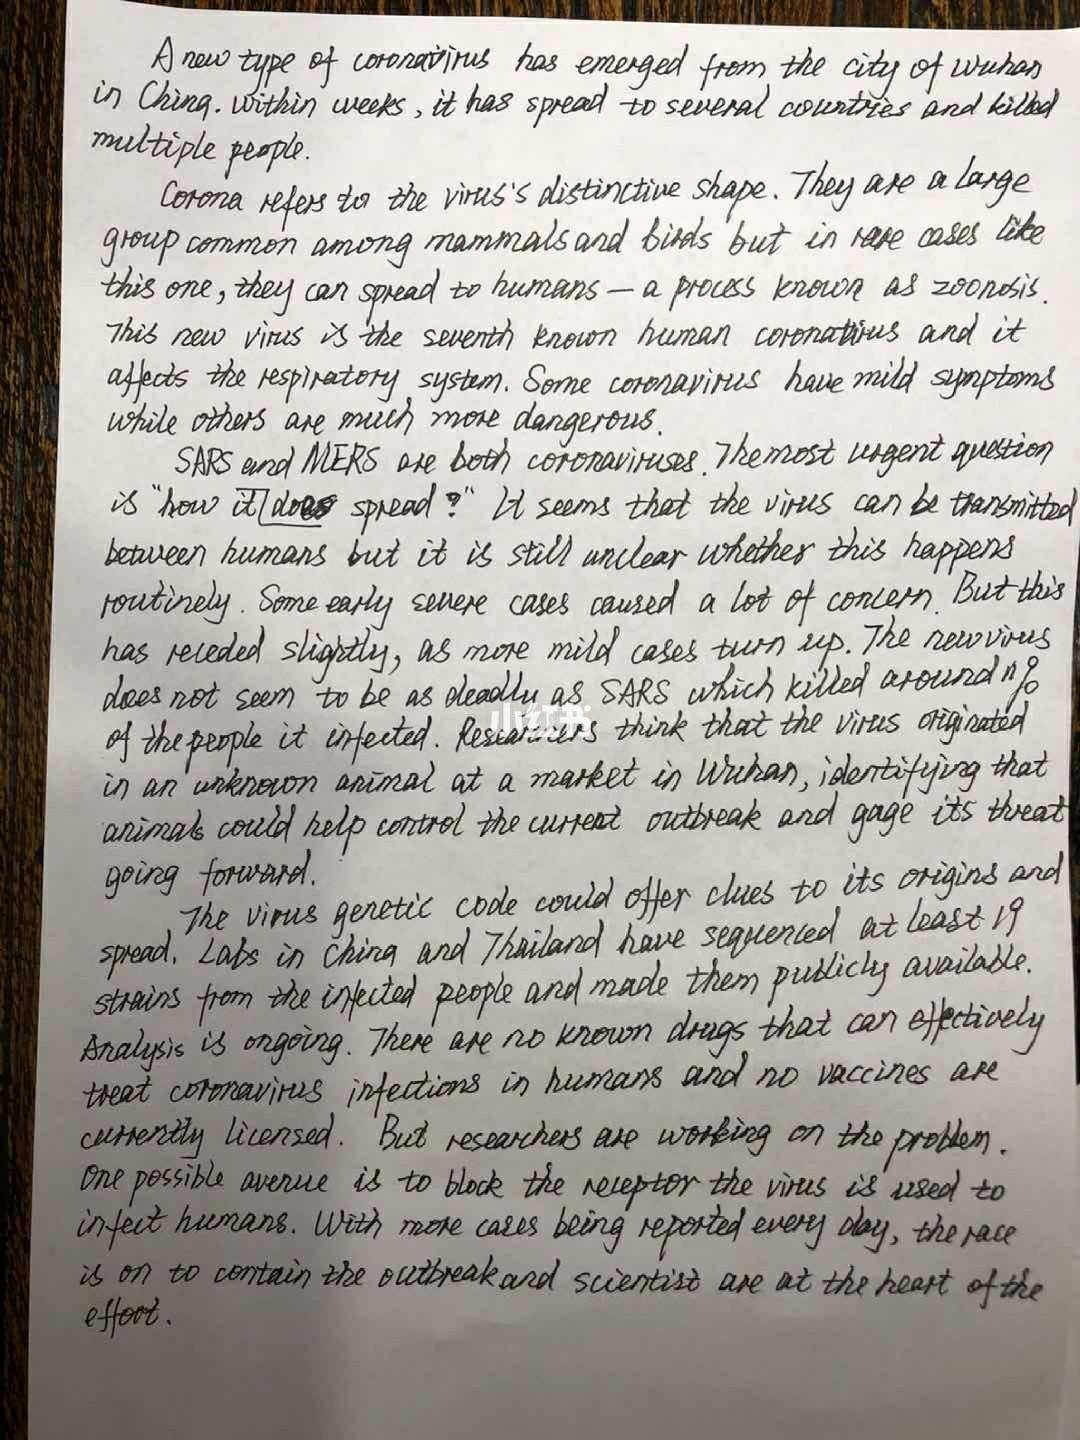 A new type of coronavirus has emerged from the city of Wuhan
in China. Within weeks, it has spread to several countries and killed
multiple people.
Corona refers to the virus's distinctive shape. They are a large
group common among mammals and birds but in rare cases like
this one, they can spread to humans — a process known as zoonosis.
This new virus is the seventh known human coronavirus and it
affects the respiratory system. Some coronavirus have mild symptoms
while others are much more dangerous.
SARS and MERS are both coronaviruses. The most urgent question
is "how it does spread?" It seems that the virus can be transmitted
between humans but it is still unclear whether this happens
routinely. Some early severe cases caused a lot of concern. But this
has receded slightly, as more mild cases turn up. The new virus
does not seem to be as deadly as SARS which killed around 11%
of the people it infected. Researchers think that the virus originated
小红书
in an unknown animal at a market in Wuhan, identifying that
animals could help control the current outbreak and gage its threat
going forward.
The virus genetic code could offer clues to its origins and
spread. Labs in China and Thailand have sequenced at least 19
strains from the infected people and made them publicly available.
Analysis is ongoing. There are no known drugs that can effectively
treat coronavirus infections in humans and no vaccines are
currently licensed. But researchers are working on the problem.
One possible avenue is to block the receptor the virus is used to
infect humans. With more cases being reported every day, the race
is on to contain the outbreak and scientist are at the heart of the
effort.